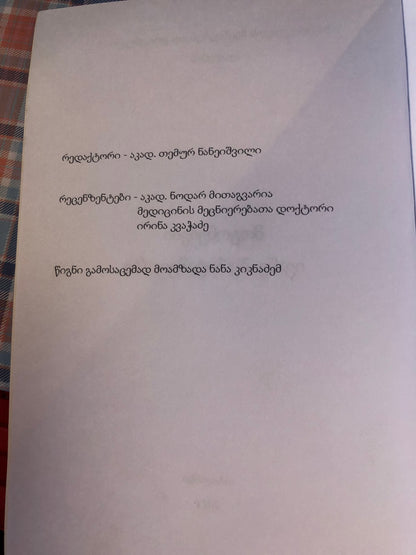 რედაქტორი - აკად. თემურ ნანეიშვილი
რეცენზენტები - აკად. ნოდარ მითაგვარია
მედიცინის მეცნიერებათა დოქტორი
ირინა კვაჭაძე
წიგნი გამოსაცემად მოამზადა ნანა კიკნაძემ